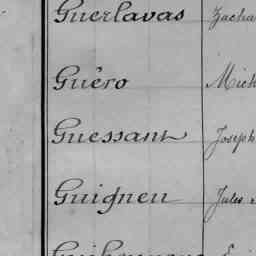 Guerlavas Zacha
Guéro Mich
Guessant Joseph
Guigneu Jules